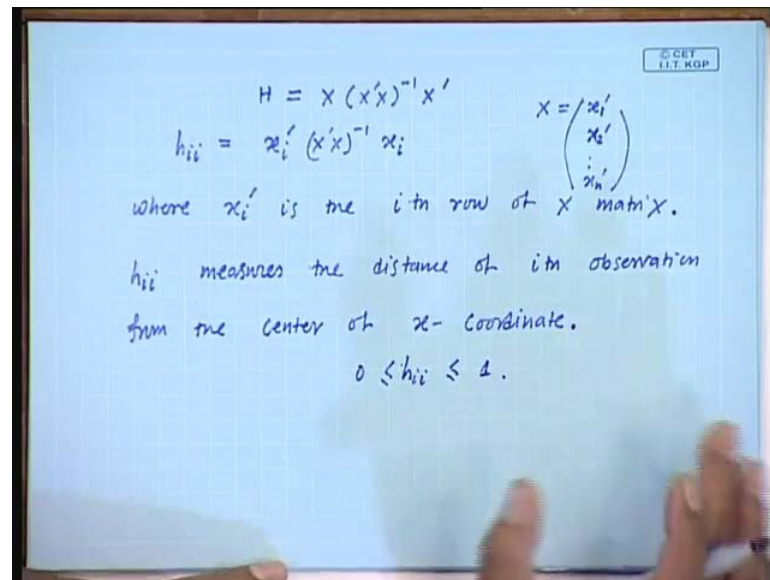 © CET
I.I.T. KGP
H = X (X'X)⁻¹ X'
X = (x₁' x₂' : xₙ')
hᵢᵢ = xᵢ' (X'X)⁻¹ xᵢ
where xᵢ' is the i th row of X matrix.
hᵢᵢ measures the distance of ith observation
from the center of x- coordinate.
0 ≤ hᵢᵢ ≤ 1.